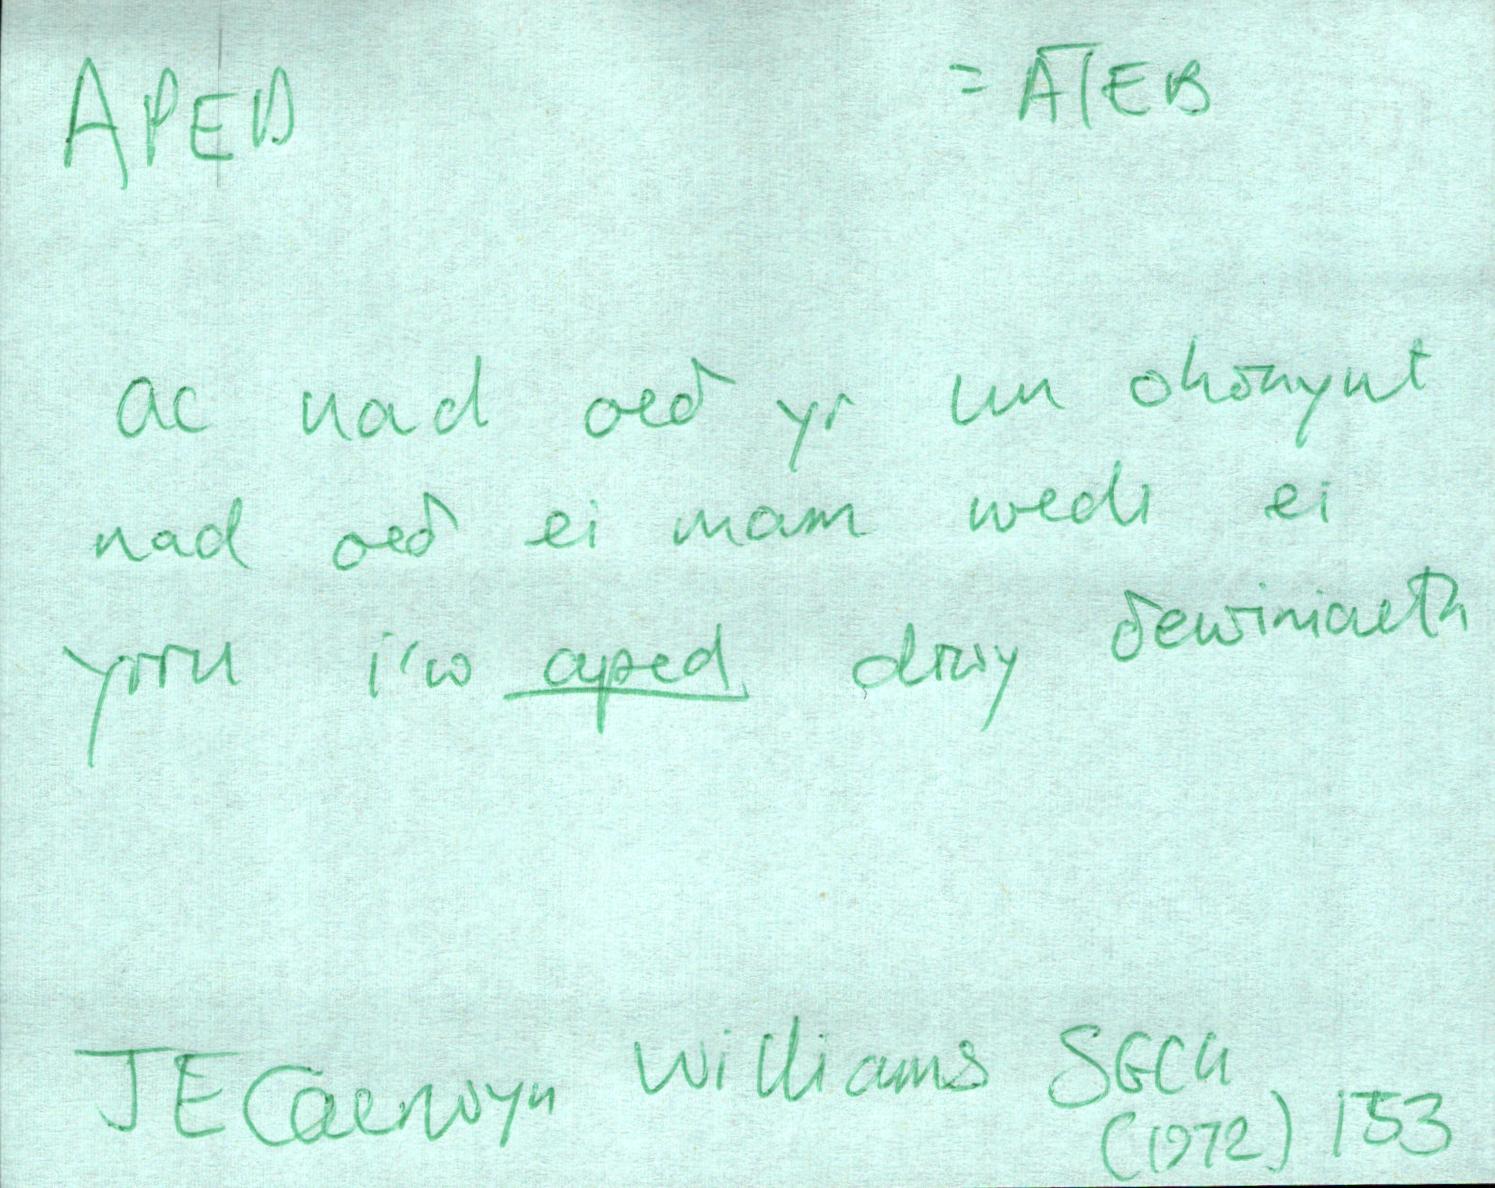 APED = ATEB
ac nad oeð yr un ohonynt
nad oeð ei mam wedi ei
yrru i'w aped drwy ðewiniaeth
J E Caerwyn Williams SGCh
(1972) 153